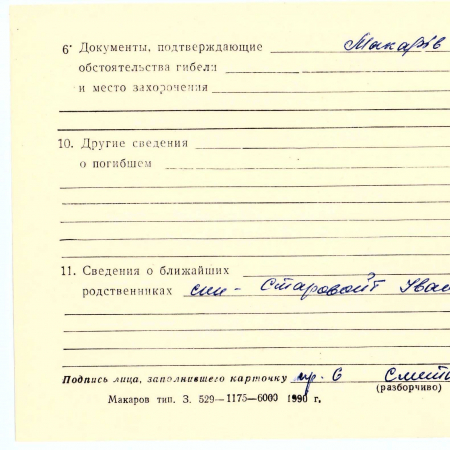 6 Документы, подтверждающие Макарів
обстоятельства гибели
и место захоронения
10. Другие сведения
о погибшем
11. Сведения о ближайших
родственниках син - Старовойт Іван
Подпись лица, заполнившего карточку
(разборчиво)
Макаров тип. З. 529—1175—6000 1990 г.